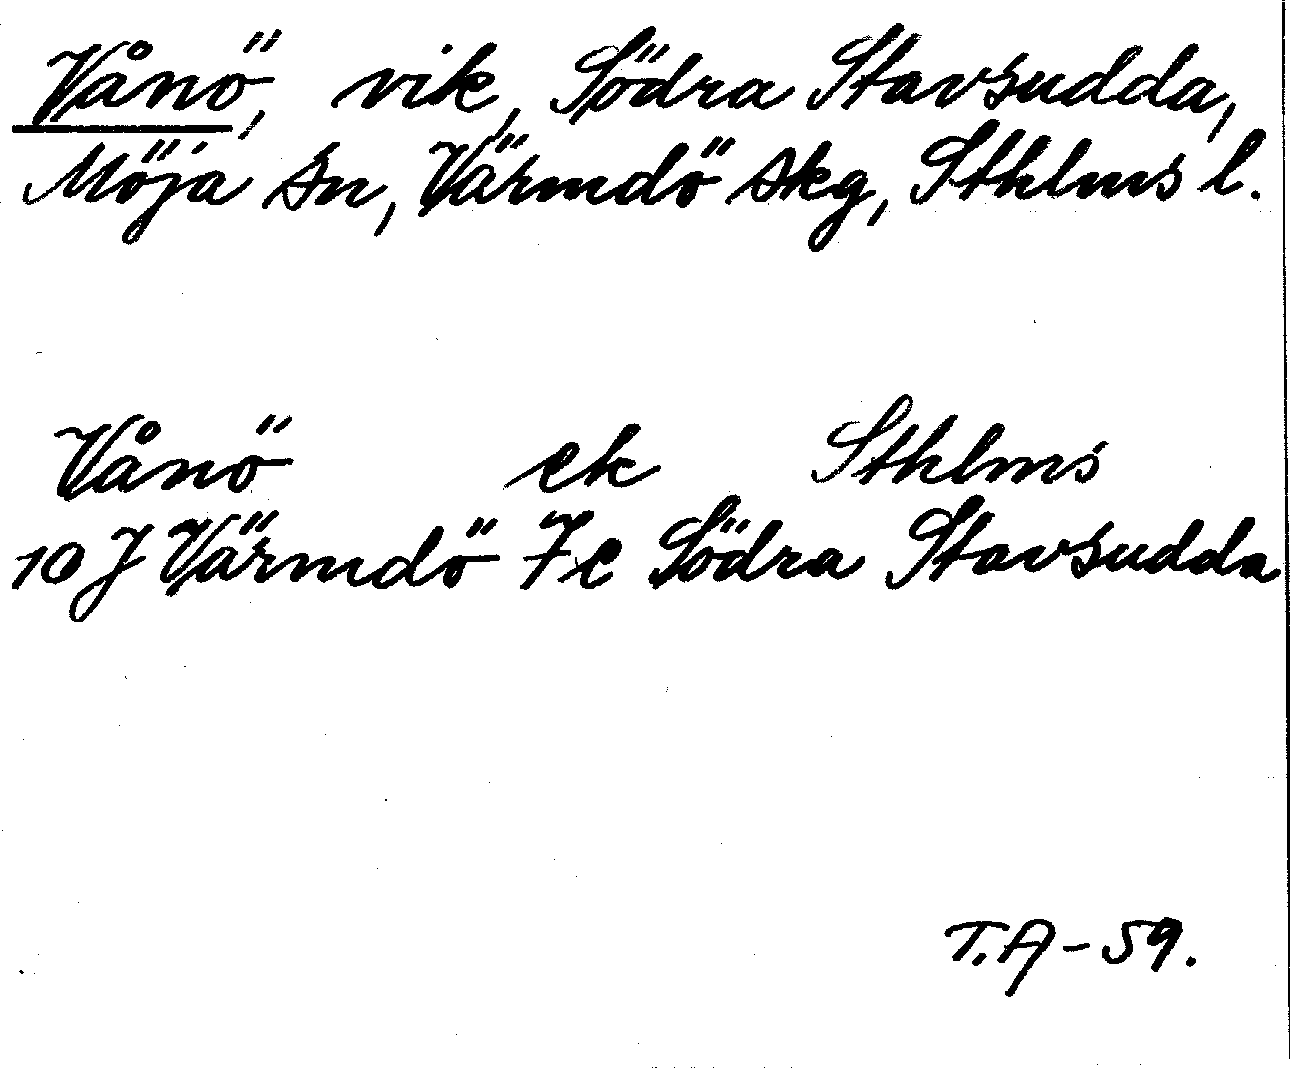 Vånö, vik, Södra Stavsudda,
Möja sn, Värmdö skg, Sthlms l.
Vånö ek Sthlms
10 J Värmdö 7 e Södra Stavsudda
T.A-59.